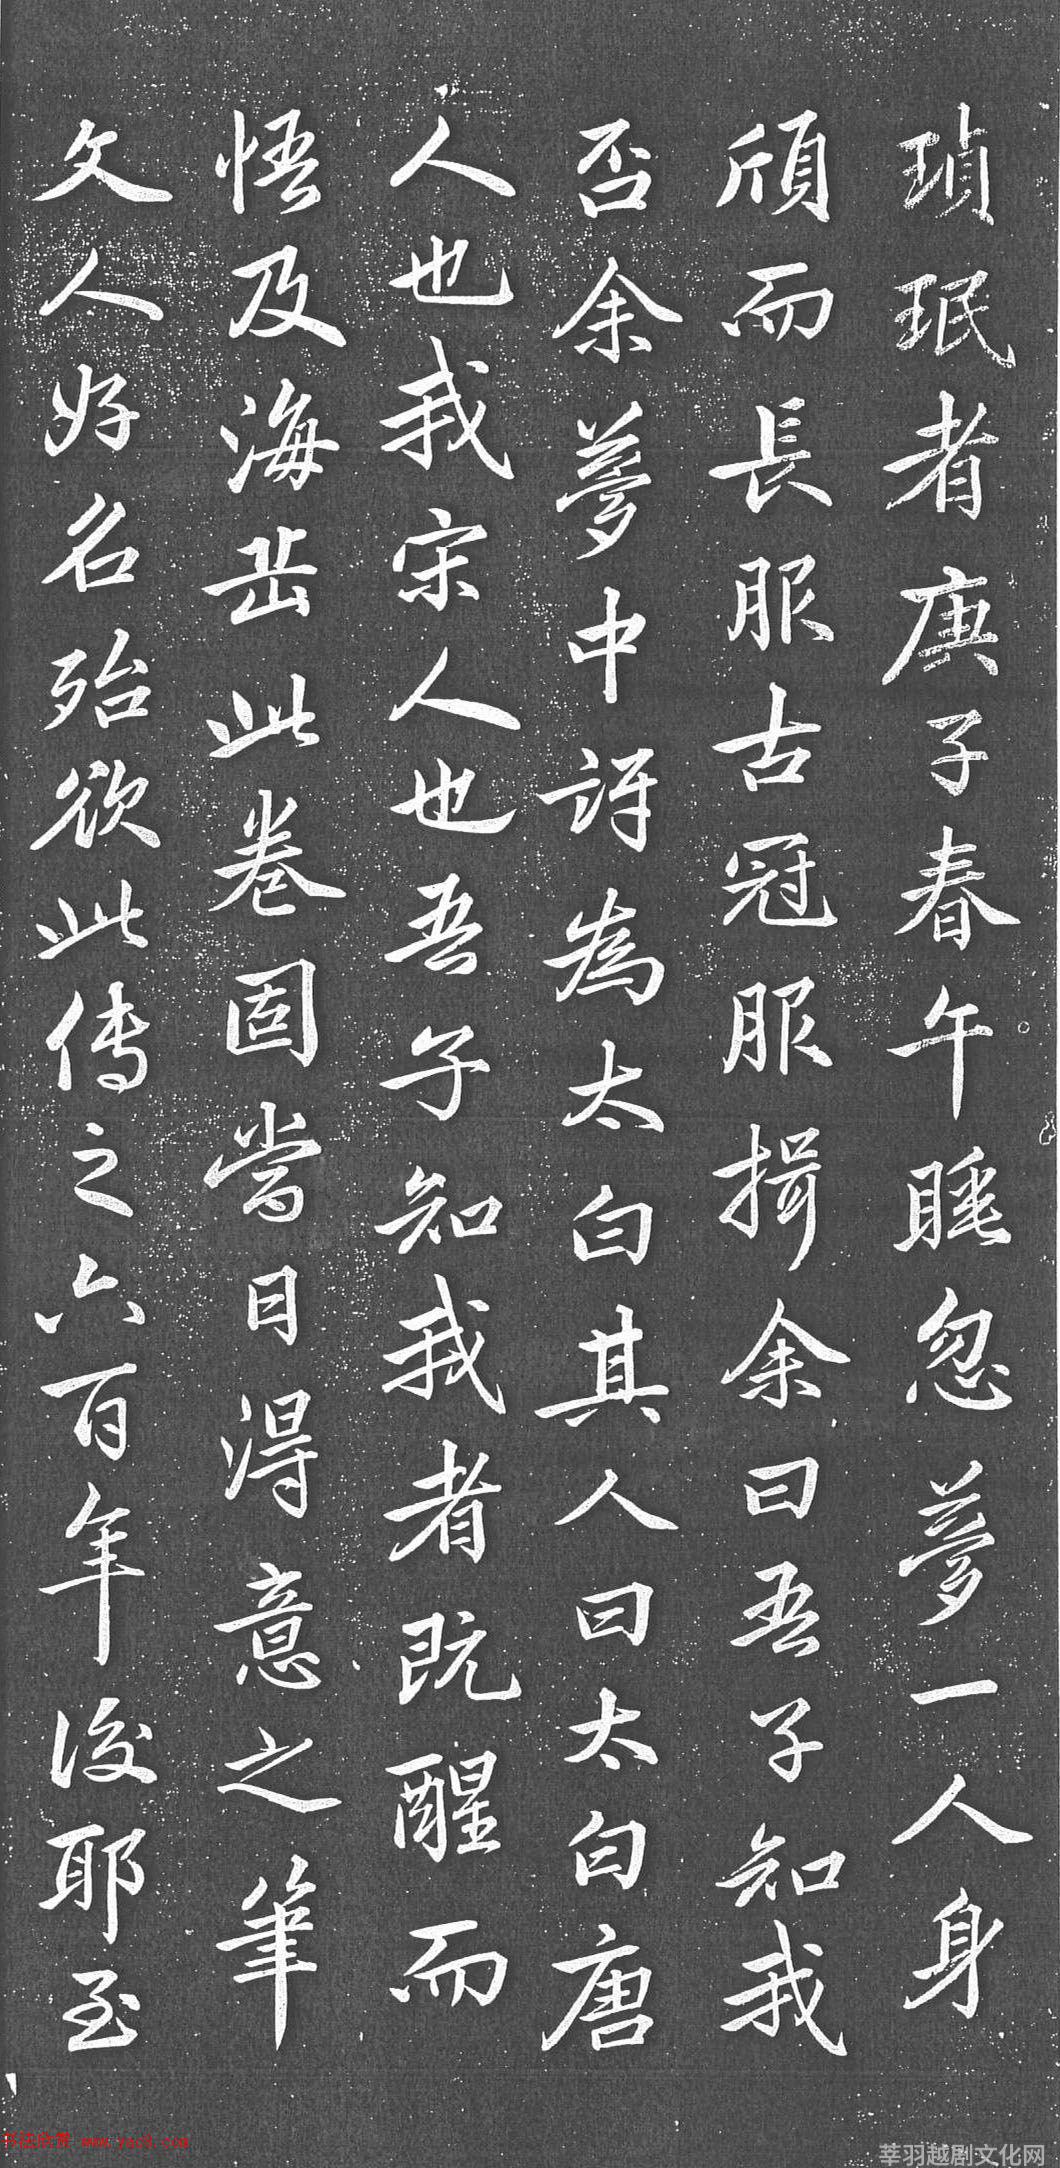 瑱珉者庚子春午睡忽夢一人身
頎而長服古冠服揖余曰吾子知我
否余夢中訝為太白其人曰太白唐
人也我宋人也吾子知我者既醒而
悟及海岳此卷固當日得意之筆
文人好名殆欲此傳之六百年後耶至
书法欣赏 www.yac8.com
莘羽越剧文化网